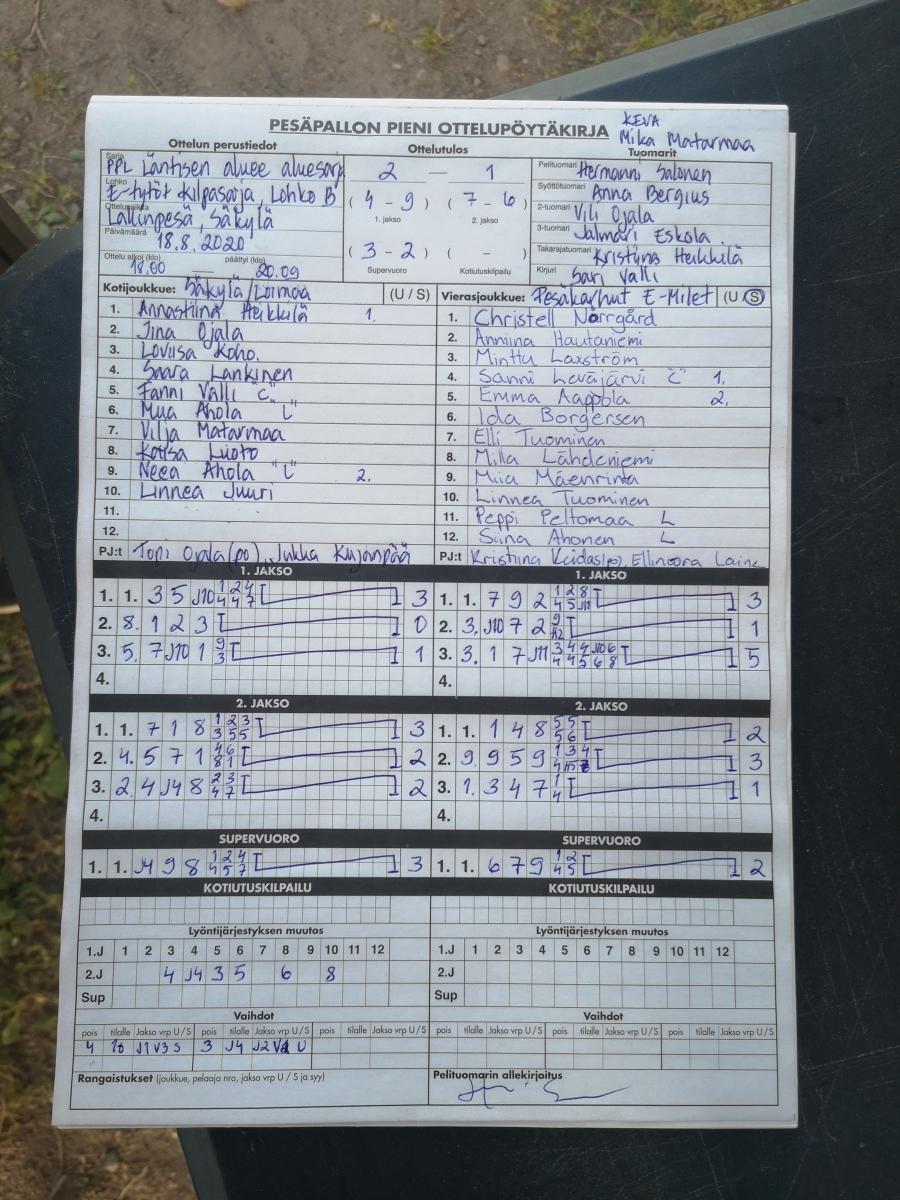 KEVA
PESÄPALLON PIENI OTTELUPÖYTÄKIRJA Mika Matarmaa
Ottelun perustiedot Ottelutulos Tuomarit
Sarja PPL Läntisen aluee aluesarja
Lohko E-tytöt Kilpasarja, Lohko B
Ottelupaikka Lallinpesä, Säkylä
Päivämäärä 18.8.2020
Ottelu alkoi (klo) 18.00 — päättyi (klo) 20.09
2 — 1
( 4 - 9 ) ( 7 - 6 )
1. jakso 2. jakso
( 3 - 2 ) ( - )
Supervuoro Kotiutuskilpailu
Pelituomari Hermanni Salonen
Syöttötuomari Anna Bergius
2-tuomari Vili Ojala
3-tuomari Jalmari Eskola
Takarajatuomari Kristiina Heikkilä
Kirjuri Sari Valli
Kotijoukkue: Säkylä/Loimaa (U / S)
1. Annastiina Heikkilä 1.
2. Iina Ojala
3. Loviisa Koho
4. Saara Lankinen
5. Fanni Valli "C"
6. Mua Ahola "L"
7. Vilja Matarmaa
8. Luoto
9. Neea Ahola "L" 2.
10. Linnea Juuri
11.
12.
PJ:t Topi Ojala(po), Jukka Kujanpää
Vierasjoukkue: Pesäkarhut E-Milet (U / S)
1. Christell Norrgård
2. Anniina Hautaniemi
3. Minttu Laxström
4. Sanni Leväjärvi "C" 1.
5. Emma Aappola 2.
6. Ida Borgersen
7. Elli Tuominen
8. Milla Lähdeniemi
9. Miia Mäenrinta
10. Linnea Tuominen
11. Peppi Peltomaa L
12. Siina Ahonen L
PJ:t Kristiina Keidas(po), Ellinoora Laine
1. JAKSO
1. 1. 3 5 J10 3
2. 8. 1 2 3 0
3. 5. 7 J10 1 1
4.
1. JAKSO
1. 1. 7 9 2 3
2. 3. J10 7 2 1
3. 3. 1 7 J11 5
4.
2. JAKSO
1. 1. 7 1 8 3
2. 4. 5 7 1 2
3. 2. 4 J4 8 2
4.
2. JAKSO
1. 1. 1 4 8 2
2. 9. 9 5 9 3
3. 1. 3 4 7 1
4.
SUPERVUORO
1. 1. J4 9 8 3
SUPERVUORO
1. 1. 6 7 9 2
KOTIUTUSKILPAILU KOTIUTUSKILPAILU
Lyöntijärjestyksen muutos Lyöntijärjestyksen muutos
1.J 1 2 3 4 5 6 7 8 9 10 11 12 1.J 1 2 3 4 5 6 7 8 9 10 11 12
2.J 4 J4 3 5 6 8 2.J
Sup Sup
Vaihdot Vaihdot
pois tilalle Jakso vrp U/S pois tilalle Jakso vrp U/S pois tilalle Jakso vrp U/S pois tilalle Jakso vrp U/S pois tilalle Jakso vrp U/S pois tilalle Jakso vrp U/S
4 10 J1 V3 S 3 J4 J2 U
Rangaistukset (joukkue, pelaaja nro, jakso vrp U / S ja syy) Pelituomarin allekirjoitus